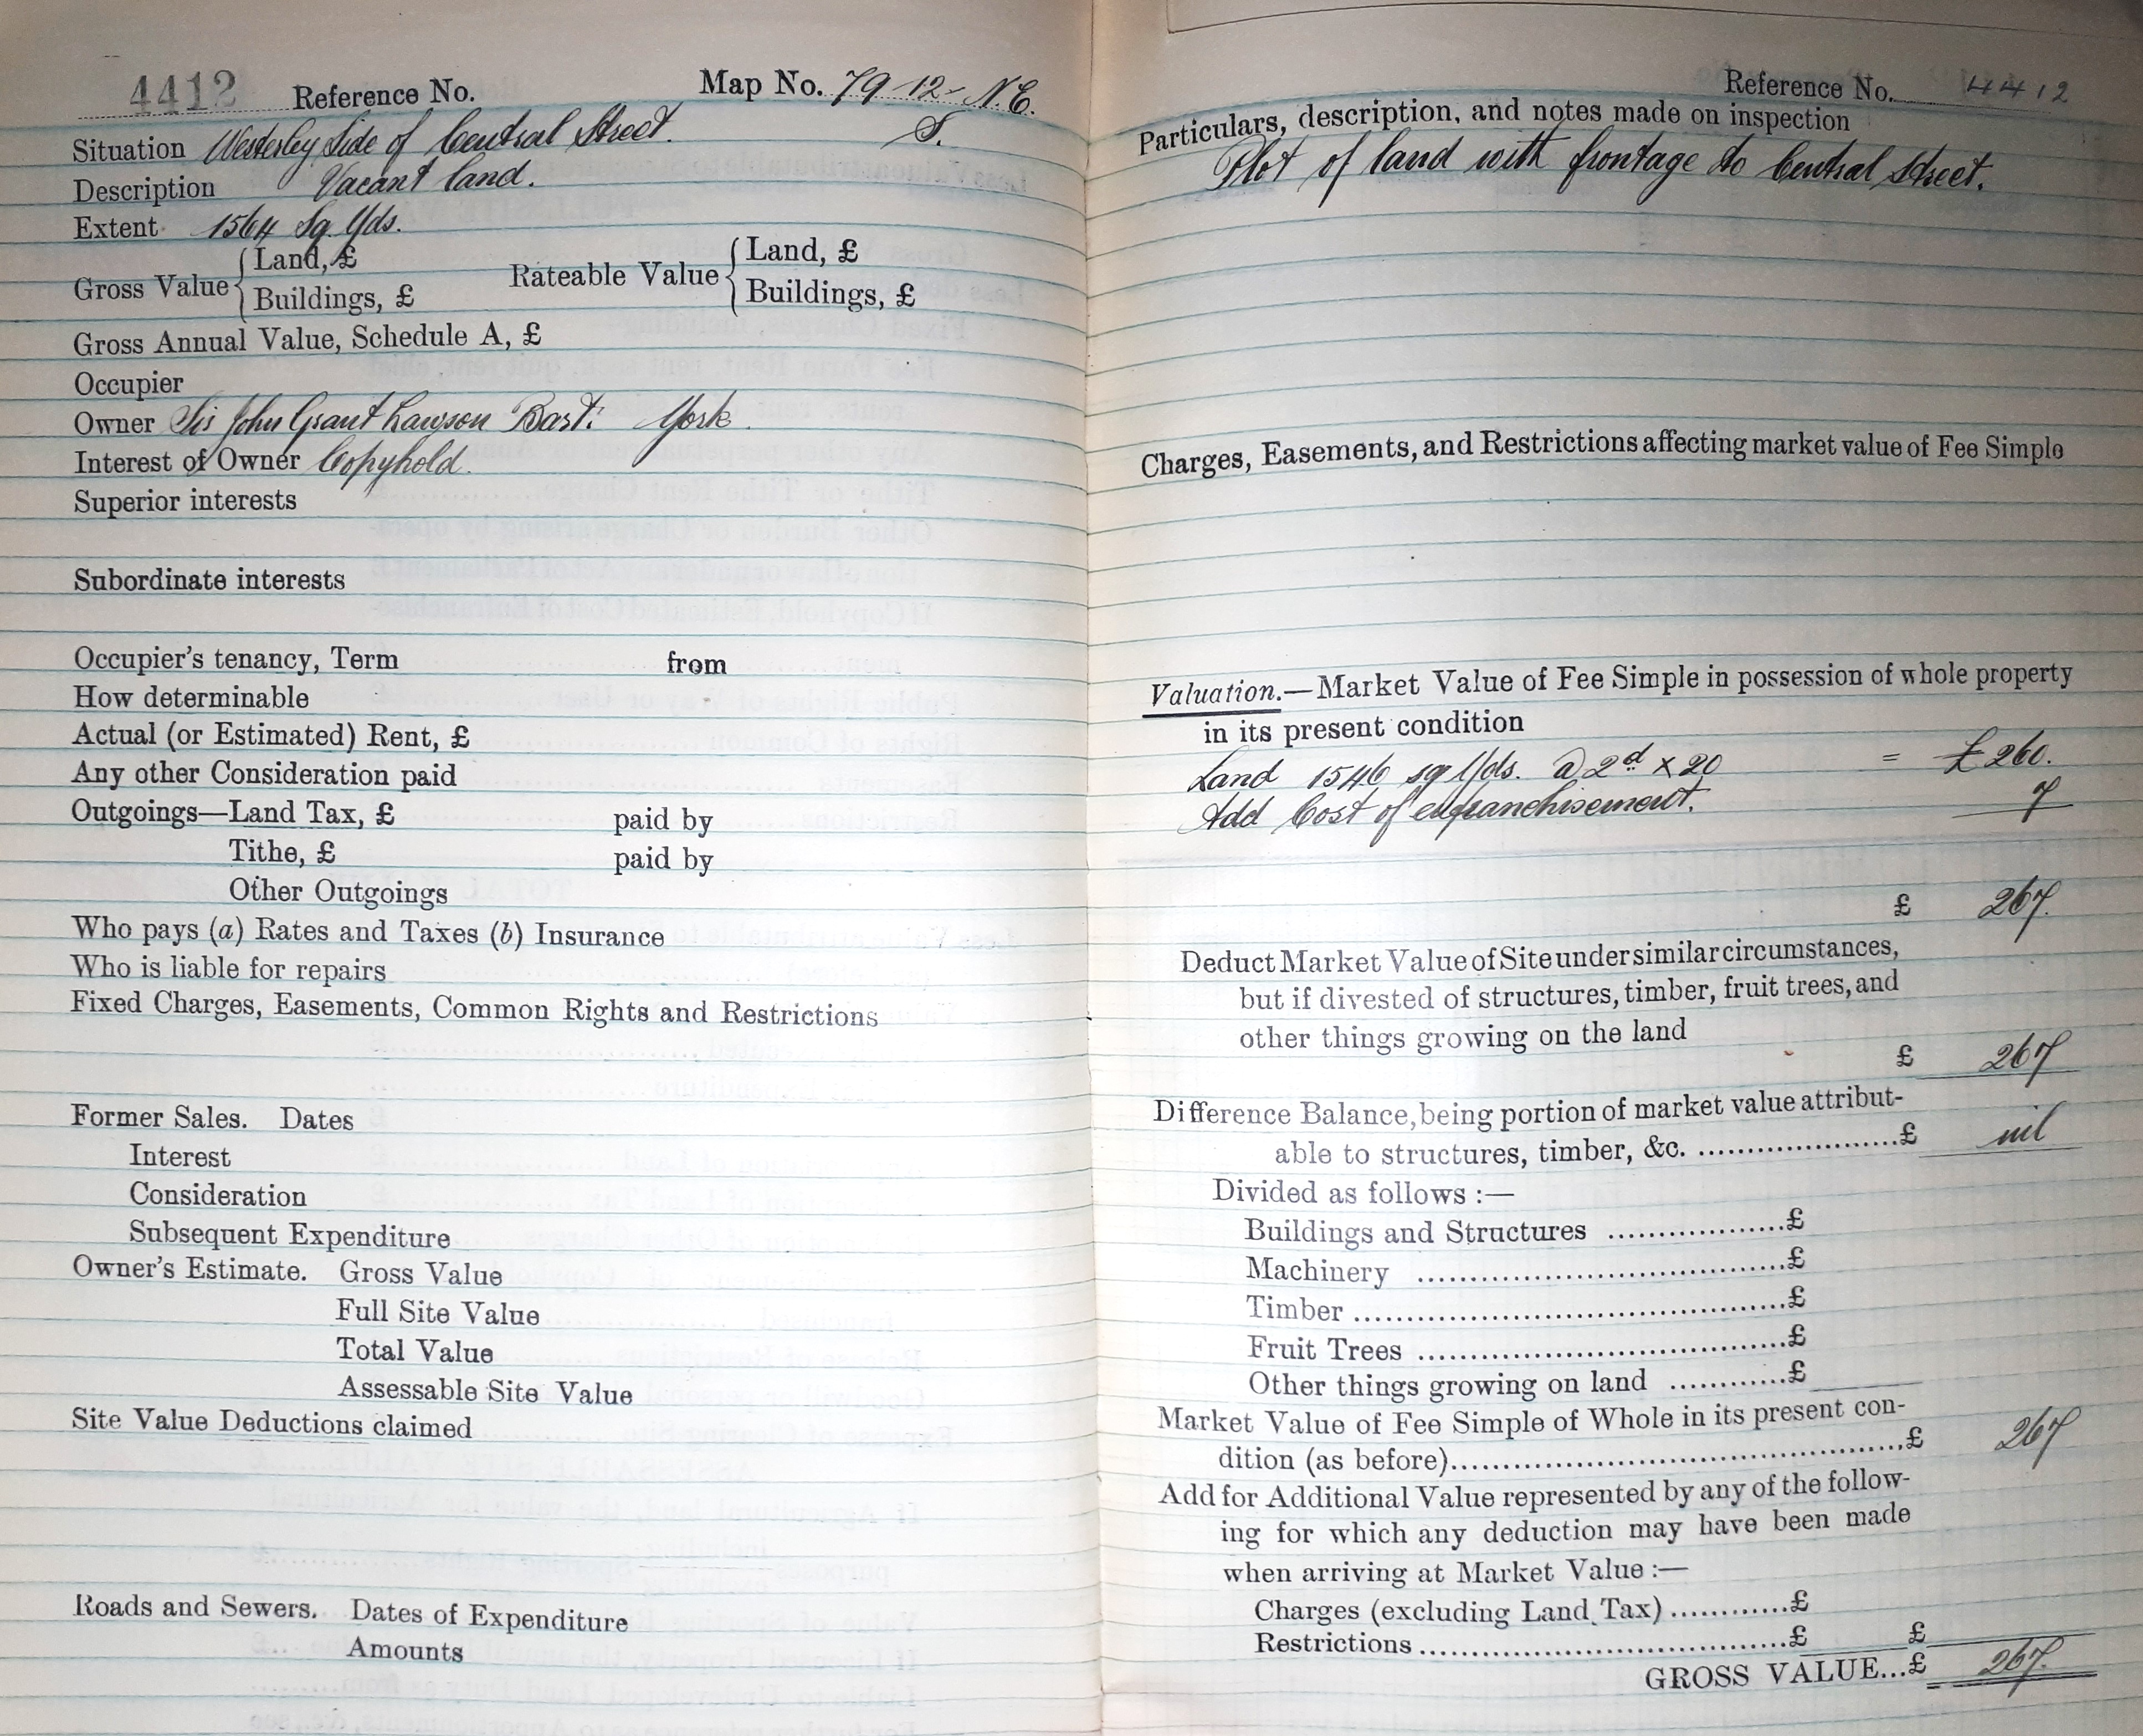 4412 Reference No. Map No. 79-12-N.E.
Situation Westerley Side of Central Street. S.
Description Vacant land.
Extent 1564 Sq. Yds.
Gross Value { Land, £ Rateable Value { Land, £
Buildings, £ Buildings, £
Gross Annual Value, Schedule A, £
Occupier
Owner Sir John Grant Lawson Bart: York.
Interest of Owner Copyhold.
Superior interests
Subordinate interests
Occupier's tenancy, Term from
How determinable
Actual (or Estimated) Rent, £
Any other Consideration paid
Outgoings—Land Tax, £ paid by
Tithe, £ paid by
Other Outgoings
Who pays (a) Rates and Taxes (b) Insurance
Who is liable for repairs
Fixed Charges, Easements, Common Rights and Restrictions
Former Sales. Dates
Interest
Consideration
Subsequent Expenditure
Owner's Estimate. Gross Value
Full Site Value
Total Value
Assessable Site Value
Site Value Deductions claimed
Roads and Sewers. Dates of Expenditure
Amounts
Reference No. 4412
Particulars, description, and notes made on inspection
Plot of land with frontage to Central Street.
Charges, Easements, and Restrictions affecting market value of Fee Simple
Valuation.—Market Value of Fee Simple in possession of whole property
in its present condition
Land 1546 sq Yds. @ 2d x 20 = £260.
Add Cost of enfranchisement. 7
£ 267.
Deduct Market Value of Site under similar circumstances,
but if divested of structures, timber, fruit trees, and
other things growing on the land
£ 267
Difference Balance, being portion of market value attribut-
able to structures, timber, &c. ....................£ nil
Divided as follows :—
Buildings and Structures .................£
Machinery ....................................£
Timber ..........................................£
Fruit Trees ....................................£
Other things growing on land ...........£
Market Value of Fee Simple of Whole in its present con-
dition (as before)............................................£ 267
Add for Additional Value represented by any of the follow-
ing for which any deduction may have been made
when arriving at Market Value :—
Charges (excluding Land Tax) ...........£
Restrictions ....................................£ £
GROSS VALUE...£ 267.